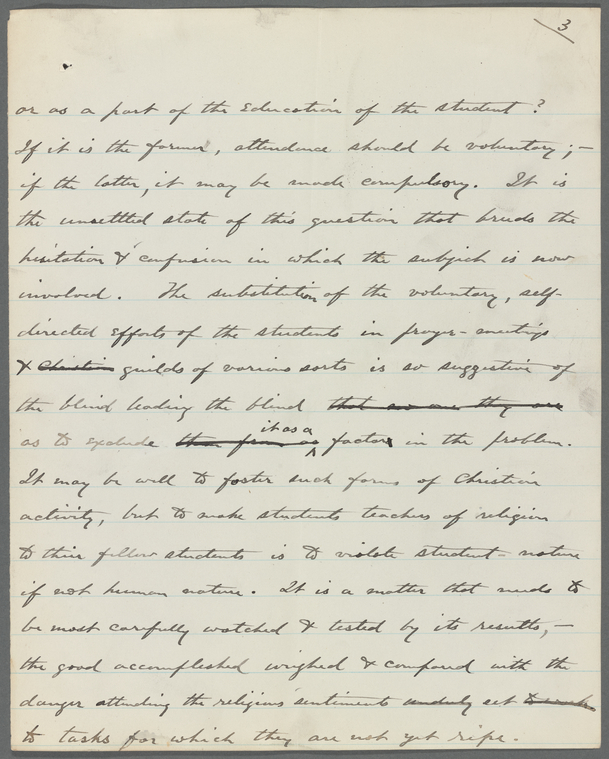 3
or as a part of the Education of the student?
If it is the former, attendance should be voluntary; –
if the latter, it may be made compulsory. It is
the unsettled state of this question that breeds the
hesitation & confusion in which the subject is now
involved. The substitution of the voluntary, self-
directed efforts of the students in prayer-meetings
& Christian guilds of various sorts is so suggestive of
the blind leading the blind that no one they are
it as a
as to exclude them from as factor in the problem.
It may be well to foster such forms of Christian
activity, but to make students teachers of religion
to their fellow students is to violate student-nature
if not human nature. It is a matter that needs to
be most carefully watched & tested by its results, –
the good accomplished weighed & compared with the
danger attending the religious sentiments unduly set to work
to tasks for which they are not yet ripe.